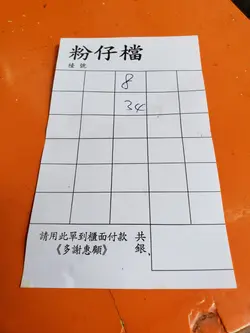 粉仔檔
檯號
8
34
請用此單到櫃面付款
《多謝惠顧》
共銀